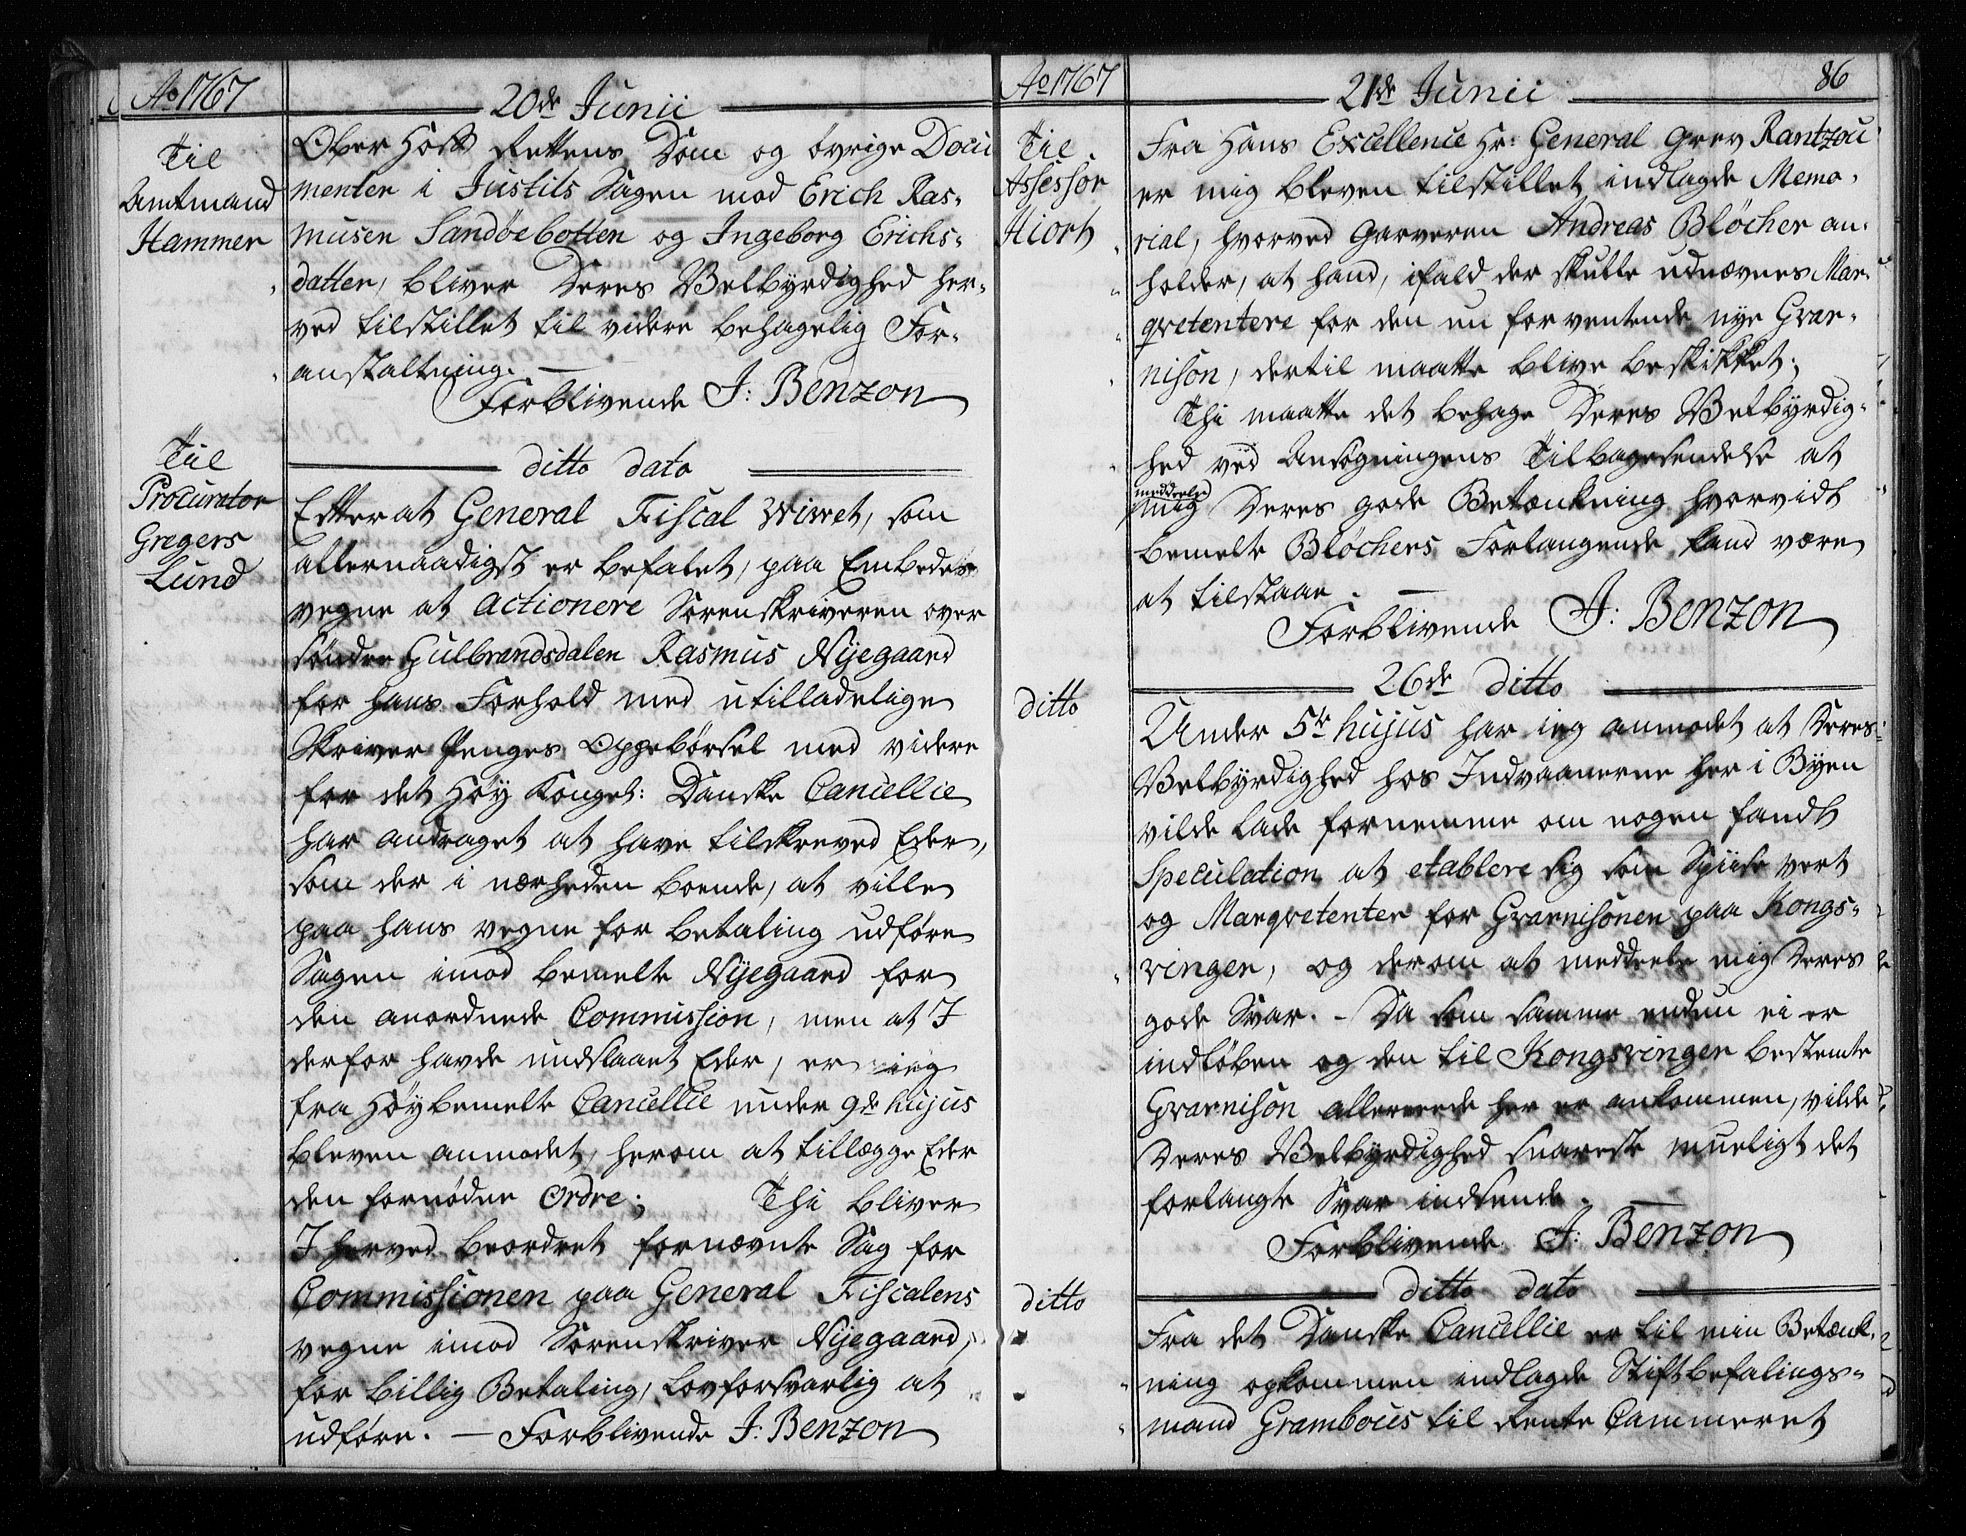 Ao 1767
20de Junii
Til
Amtmand
Hammer
Ober Hoff Rettens Dom og øvrige Docu
menter i Justits Sagen mod Erich Ras-
musen Sandöebotten og Ingeborg Erichs-
datter, bliver Deres Velbyrdighed her-
ved tilstillet til videre behagelig For-
anstaltning. —
Forblivende J: Benzon
Til
Procurator
Gregers
Lund
ditto dato
Efterat General Fiscal Wiwet, som
allernaadigst er befalet, paa Embeds
vegne at actionere Sorenskriveren over
Sönder Gulbrandsdalen Rasmus Nijegaard
for hans Forhold med utilladelige
Skriver Penges Oppebörsel med videre
for det Höy Konget: Danske Cancellie
har andraget at have tilskreved Eder,
som der i nærheden boende, at ville
paa hans vegne for betaling udføre
Sagen imod bemelte Nijegaard for
den anordnede Commission, men at I
derfor havde undslaaet Eder, er ieg
fra Höybemelte Cancellie under 9de hujus
bleven anmodet, herom at tillægge Eder
den fornødne Ordre; Thi bliver
I herved beordret fornævnte Sag for
Commissionen paa General Fiscalens
vegne imod Sorenskriver Nijegaard,
for billig Betaling, lovforsvarlig at
udføre. — Forblivende J: Benzon
Ao 1767
21de Junii
86
Til
Assessor
Hiort
Fra Hans Excellence Hr: General Grev Rantzou
er mig bleven tilstillet indlagde Memo-
rial, hvorved Garveren Andreas Blöcher an-
holder, at hand, ifald der skulle udnævnes Mar-
qvetentere for den nu forventende nye Guar-
nison, dertil maatte blive beskikket;
Thi maatte det behage Deres Velbyrdig-
hed ved Ansøgningens Tilbagesendelse at
meddele
mig Deres gode Betænkning hvorvidt
bemelte Blöchers Forlangende kand være
at tilstaae. —
Forblivende J: Benzon
26de ditto
ditto
Under 5te hujus har ieg anmodet at Deres
Velbyrdighed hos Indvaanerne her i Byen
vilde lade fornemme om nogen fandt
Speculation at etablere sig som Spiise vert
og Marqvetenter for Guarnisonen paa Kongs-
vinger, og derom at meddeele mig Deres
gode Svar. - Da som samme endnu ei er
indløben og den til Kongsvinger bestemte
Guarnison allereede her er ankommen, vilde
Deres Velbyrdighed snareste mueligt det
forlangte Svar indsende. —
Forblivende J: Benzon
ditto dato
ditto
Fra det Danske Cancellie er til min Betænk-
ning opkommen indlagde Stiftbefalings-
mand Grambous til Rente Cammeret